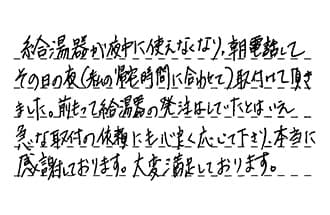 給湯器が夜中に使えなくなり、朝電話して
その日の夜(私の帰宅時間に合わせて)取付けて頂き
ました。前もって給湯器の発注はしていたとはいえ
急な取付の依頼にも心良く応じて下さり、本当に
感謝しております。大変満足しております。